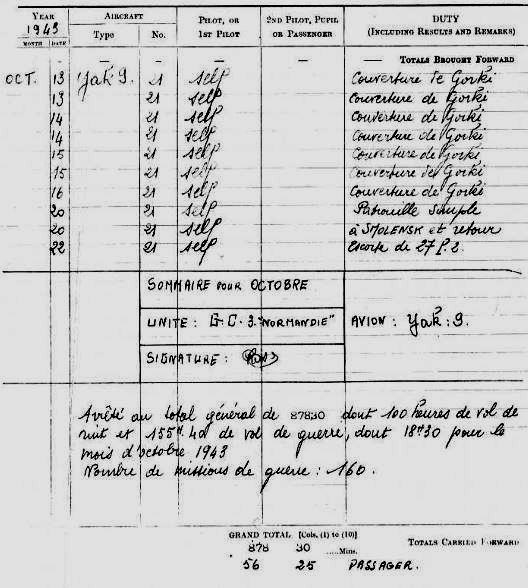 YEAR AIRCRAFT PILOT, OR 2ND PILOT, PUPIL DUTY
1943 Type No. 1ST PILOT OR PASSENGER (INCLUDING RESULTS AND REMARKS)
MONTH DATE
— — — — TOTALS BROUGHT FORWARD
OCT. 13 Yak 9. 21 self Couverture de Gorki
13 21 self Couverture de Gorki
14 21 self Couverture de Gorki
14 21 self Couverture de Gorki
15 21 self Couverture de Gorki
15 21 self Couverture de Gorki
16 21 self Couverture de Gorki
20 21 self Patrouille simple
20 21 self à SMOLENSK et retour
22 21 self Escorte de 27 P.2.
SOMMAIRE POUR OCTOBRE
UNITE : G.C.3."NORMANDIE" AVION : Yak : 9.
SIGNATURE :
Arrêté au total général de 87830 dont 100 heures de vol de
nuit et 155H 40 de vol de guerre, dont 18H30 pour le
mois d'octobre 1943
Nombre de missions de guerre : 160.
GRAND TOTAL [Cols. (1) to (10)]
878 30 ......Mins. TOTALS CARRIED FORWARD
56 25 PASSAGER.